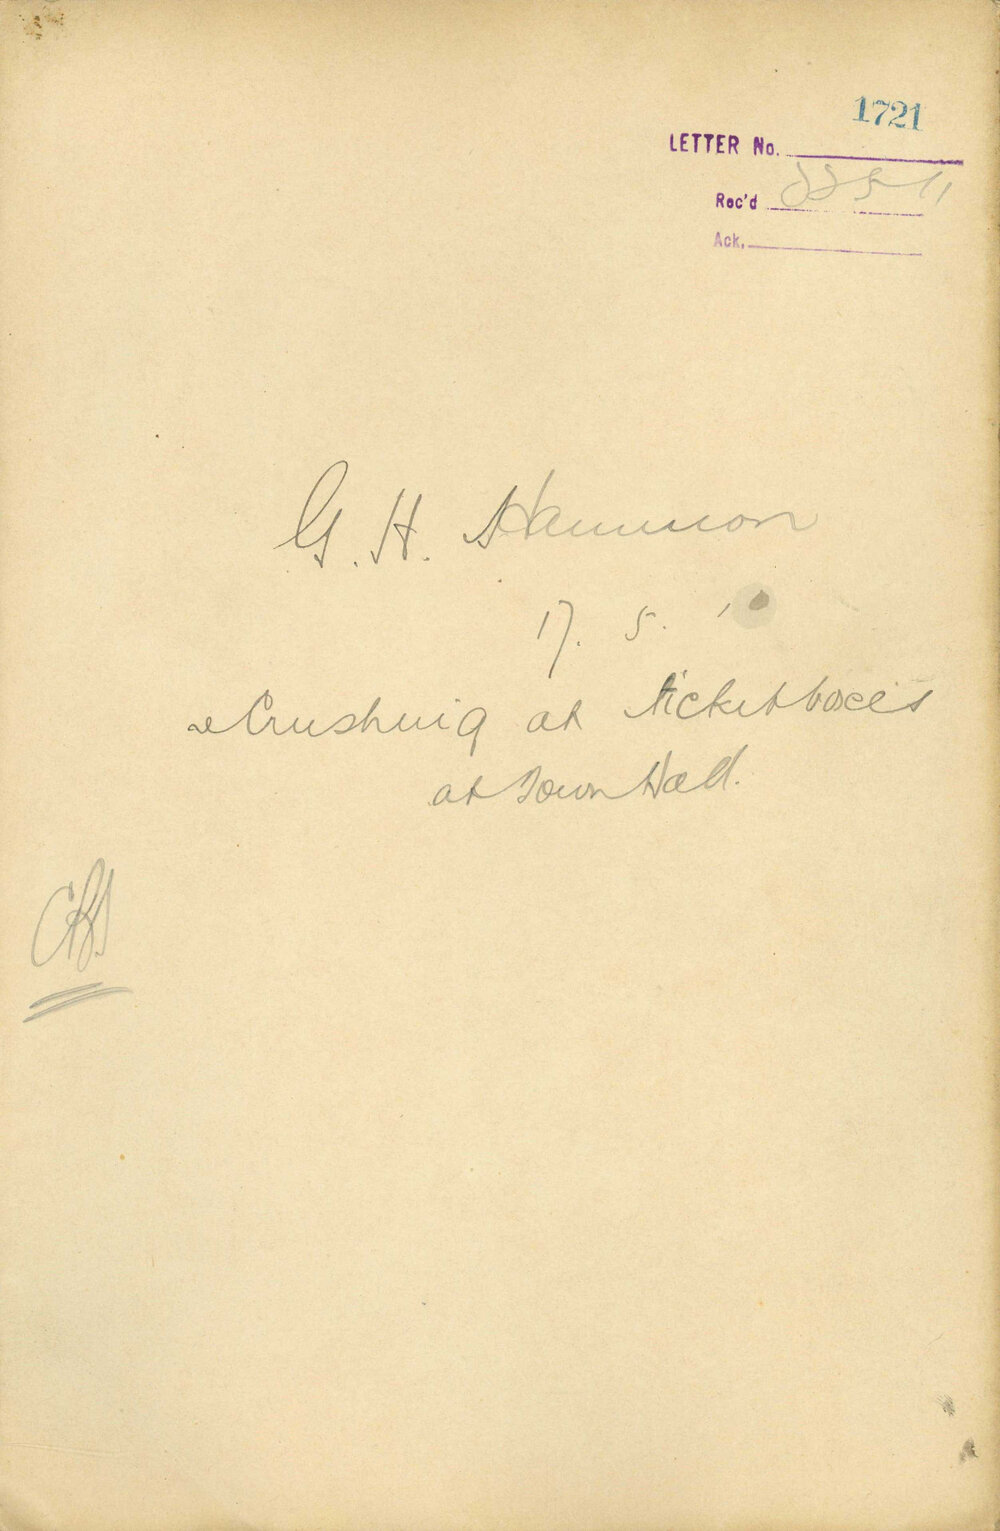 1721
LETTER No.
Rec'd 22 5 11
Ack.
G. H. Hammon
17. 5.
re Crushing at ticket boxes
at Town Hall.